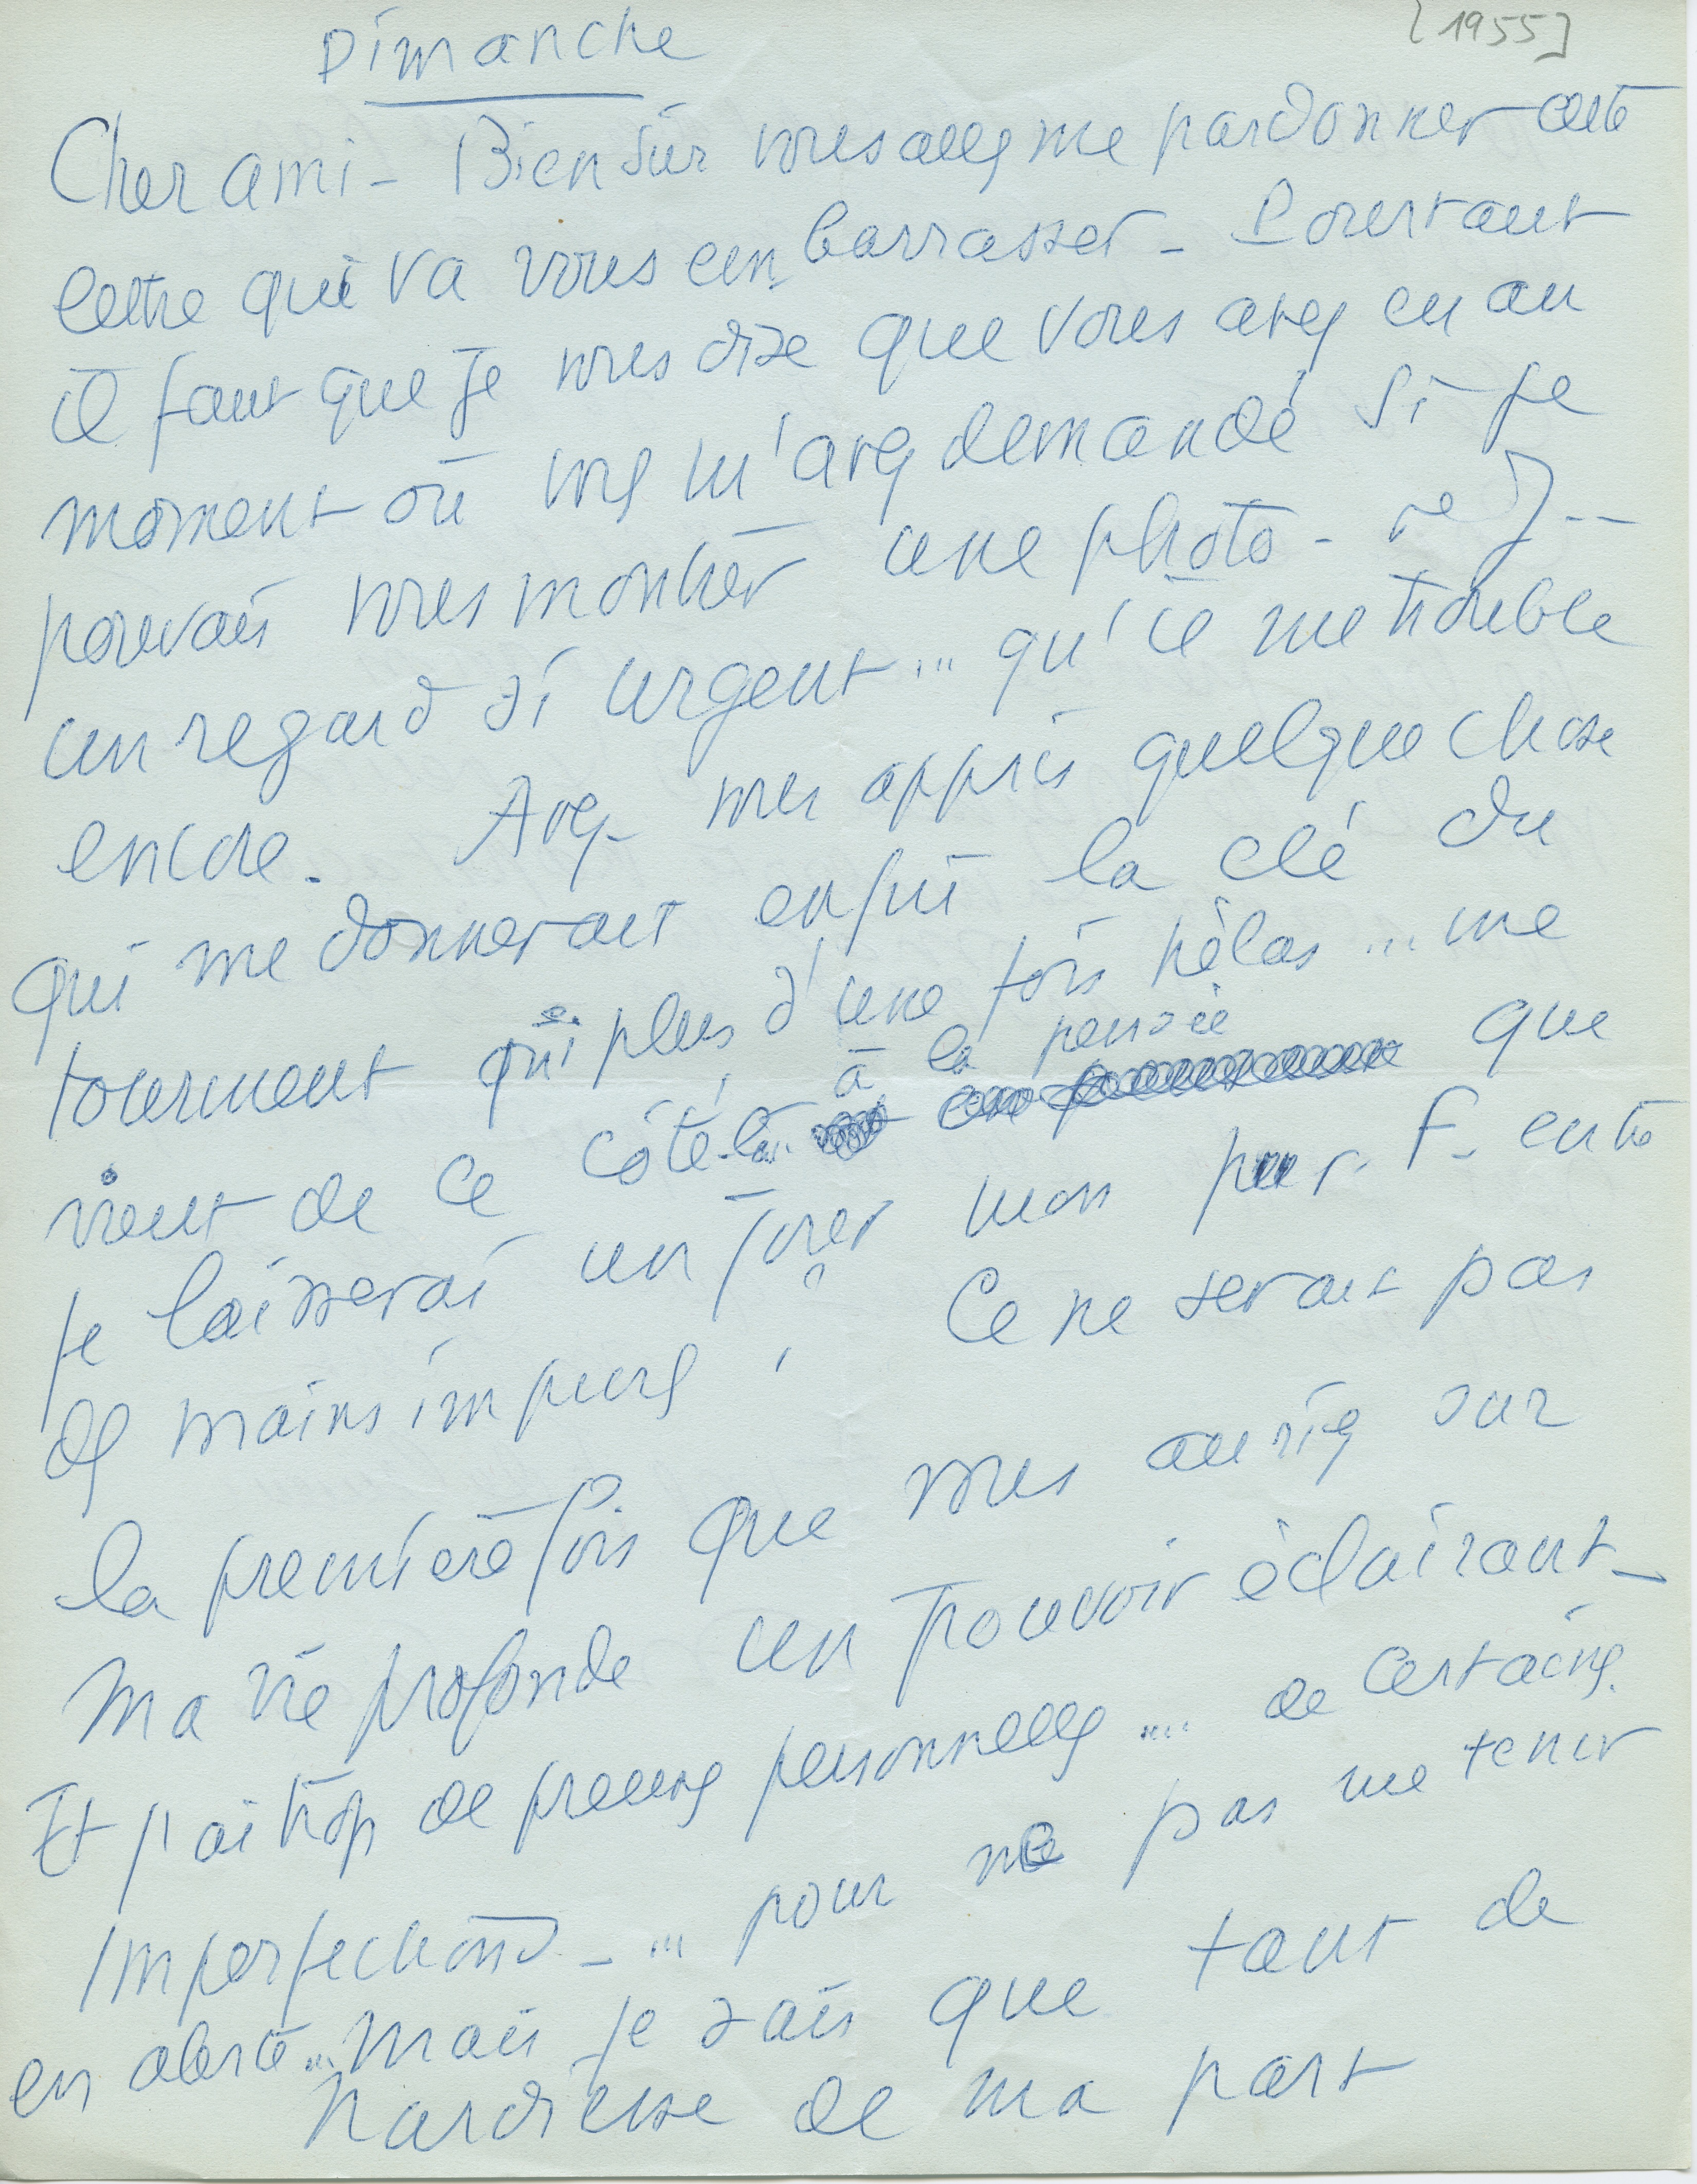 Dimanche
[1955]
Cher ami - Bien sûr vous allez me pardonner cette
lettre qui va vous embarrasser - Pourtant
il faut que je vous dise que vous avez eu au
moment où vous m'avez demandé si je
pouvais vous montrer une photo - de J --
un regard si urgent ... qu'il me trouble
encore. Avez-vous appris quelque chose
qui me donnerait enfin la clé du
tourment qui plus d'une fois hélas ... me
vient de ce côté-là.. à la pensée que
je laisserai un jour mon F. entre
des mains impures ! Ce ne serait pas
la première fois que vous auriez sur
ma vie profonde un pouvoir éclairant -
Et j'ai trop de preuves personnelles ... de certaines
imperfections - ... pour ne pas me tenir
en alerte ... Mais je sais que tant de
hardiesse de ma part